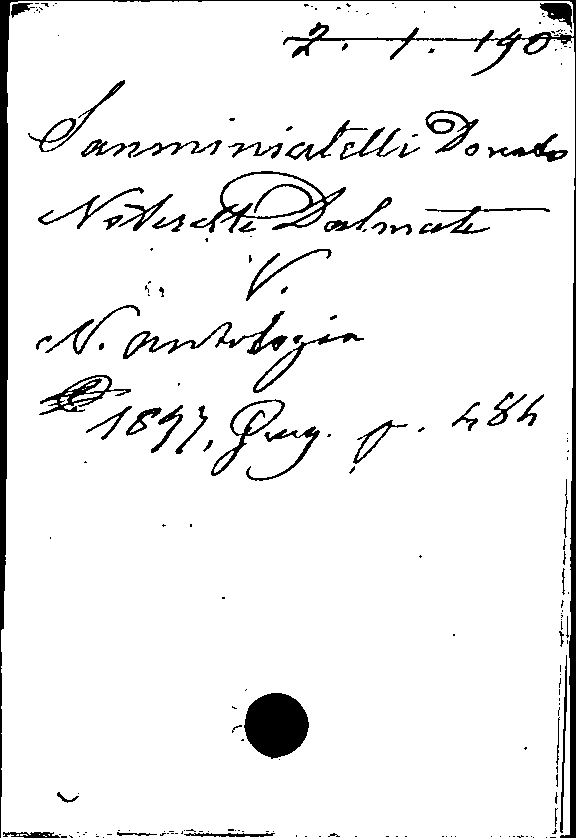 2. 1. 190
Sanminiatelli Donato
Noterelle Dalmate
V.
N. Antologia
1897, Giug. p. 484